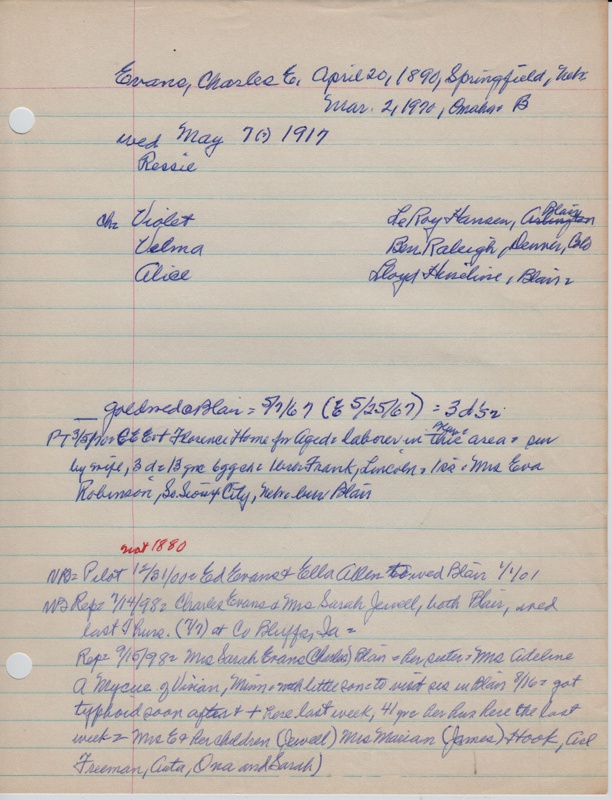 Evans, Charles E. April 20, 1890, Springfield, Nebr.
Mar. 2, 1970, Omaha = B
wed May 7(?) 1917
Ressie
ch = Violet LeRoy Hansen, Arlington Blair
Velma Ben Raleigh, Denver, Colo
Alice Lloyd Heneline, Blair =
goldwed @ Blair = 5/7/67 (E 5/25/67) = 3 d's =
PT 3/5/70 = CEE + Florence Home for Aged = laborer in this area = sur
by wife, 3 d = 13 gnc 6 ggch = 1 bro = Frank, Lincoln = 1 sis = Mrs Eva
Robinson, So. Sioux City, Nebr = bur Blair
not 1880
NB = Pilot 12/31/00 = Ed Evans + Ella Allen wed Blair 1/1/01
NB Rep = 7/14/98 = Charles Evans + Mrs Sarah Jewell, both Blair, wed
last Thurs. (7/7) at Co Bluffs, Ia =
Rep = 9/15/98 = Mrs Sarah Evans (Charles) Blair = her sister = Mrs Adeline
A Mycue of Vivian, Minn = with little son = to visit sis in Blair 8/16 = got
typhoid soon after + + here last week, 41 yr = her hus here the last
week = Mrs E + her children (Jewell) Mrs Marian (James) Hook,
Freeman, Asta, Ona and Sarah)